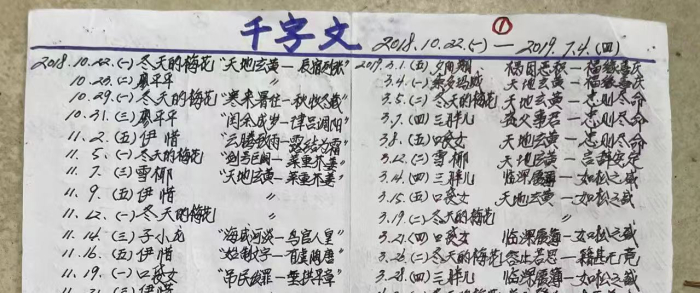 千字文 ①
2018.10.22.(一)—2019.7.4.(四)
2018.10.22.(一)冬天的梅花 "天地玄黄—辰宿列张"
10.23.(二)廖平平 〃
10.29.(一)冬天的梅花 "寒来暑往—秋收冬藏"
10.31.(三)廖平平 "闰余成岁—律吕调阳"
11.2.(五)伊惜 "云腾致雨—露结为霜"
11.5.(一)冬天的梅花 "剑号巨阙—菜重芥姜"
11.7.(三)雪郁 "天地玄黄—菜重芥姜"
11.9.(五)伊惜 〃
11.12.(一)冬天的梅花 〃
11.14.(三)子小龙 "海咸河淡—鸟官人皇"
11.16.(五)伊惜 "始制文字—有虞陶唐"
11.19.(一)口天女 "吊民伐罪—坐朝平章"
伊惜
2019.3.1.(五) 祸因恶积—福缘善庆
3.4.(一) 天地玄黄—福缘善庆
3.5.(二)冬天的梅花 天地玄黄—忠则尽命
3.7.(四)三胖儿 资父事君—忠则尽命
3.8.(五)口天女 天地玄黄—忠则尽命
3.12.(二)雪郁 天地玄黄—言辞安定
3.14.(四)三胖儿 临深履薄—如松之盛
3.15.(五)口天女 天地玄黄—如松之盛
3.19.(二)冬天的梅花 〃
3.21.(四)口天女 临深履薄—如松之盛
3.26.(二)冬天的梅花 容止若思—籍甚无竟
3.28.(四)三胖儿 临深履薄—如松之盛